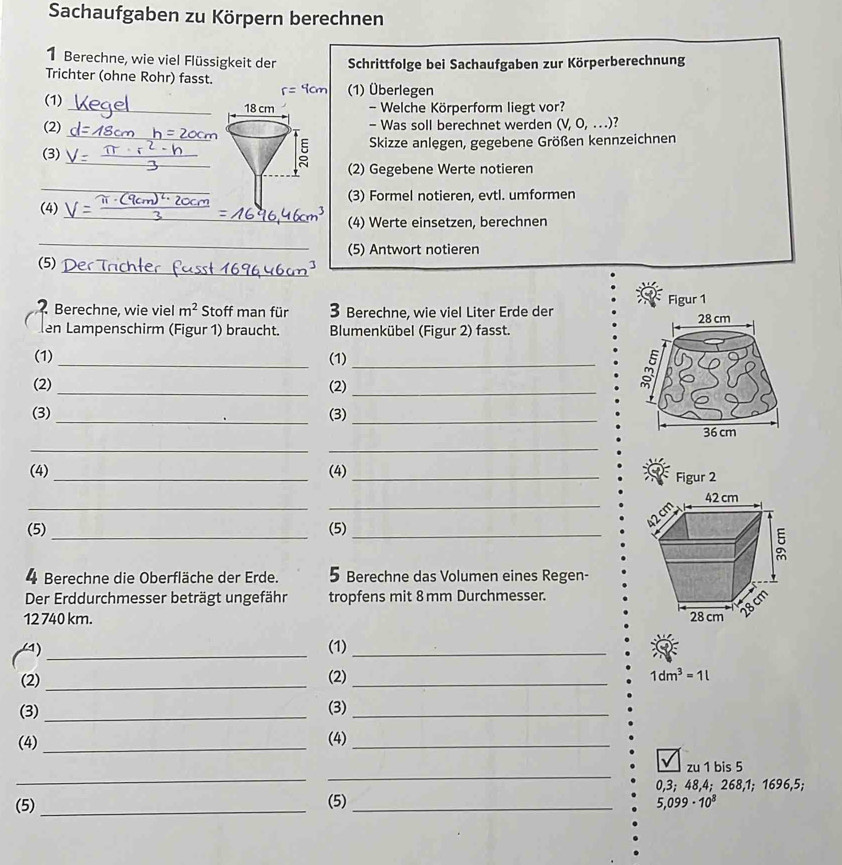 Sachaufgaben zu Körpern berechnen
1 Berechne, wie viel Flüssigkeit der
Trichter (ohne Rohr) fasst.
(1) Kegel
(2) d=18cm h=20cm
(3) V= π·r²·h / 3
(4) V= π·(9cm)²·20cm / 3 =1696,46cm³
(5) Der Trichter fasst 1696,46cm³
r=9cm
18 cm
20 cm
Schrittfolge bei Sachaufgaben zur Körperberechnung
(1) Überlegen
– Welche Körperform liegt vor?
– Was soll berechnet werden (V, O, …)?
Skizze anlegen, gegebene Größen kennzeichnen
(2) Gegebene Werte notieren
(3) Formel notieren, evtl. umformen
(4) Werte einsetzen, berechnen
(5) Antwort notieren
2 Berechne, wie viel m² Stoff man für
en Lampenschirm (Figur 1) braucht.
(1)
(2)
(3)
(4)
(5)
3 Berechne, wie viel Liter Erde der
Blumenkübel (Figur 2) fasst.
(1)
(2)
(3)
(4)
(5)
Figur 1
28 cm
30,3 cm
36 cm
Figur 2
42 cm
42 cm
39 cm
28 cm
28 cm
4 Berechne die Oberfläche der Erde.
Der Erddurchmesser beträgt ungefähr
12 740 km.
(1)
(2)
(3)
(4)
(5)
5 Berechne das Volumen eines Regen-
tropfens mit 8 mm Durchmesser.
(1)
(2)
(3)
(4)
(5)
1 dm³ = 1 l
zu 1 bis 5
0,3; 48,4; 268,1; 1696,5;
5,099 · 10⁸